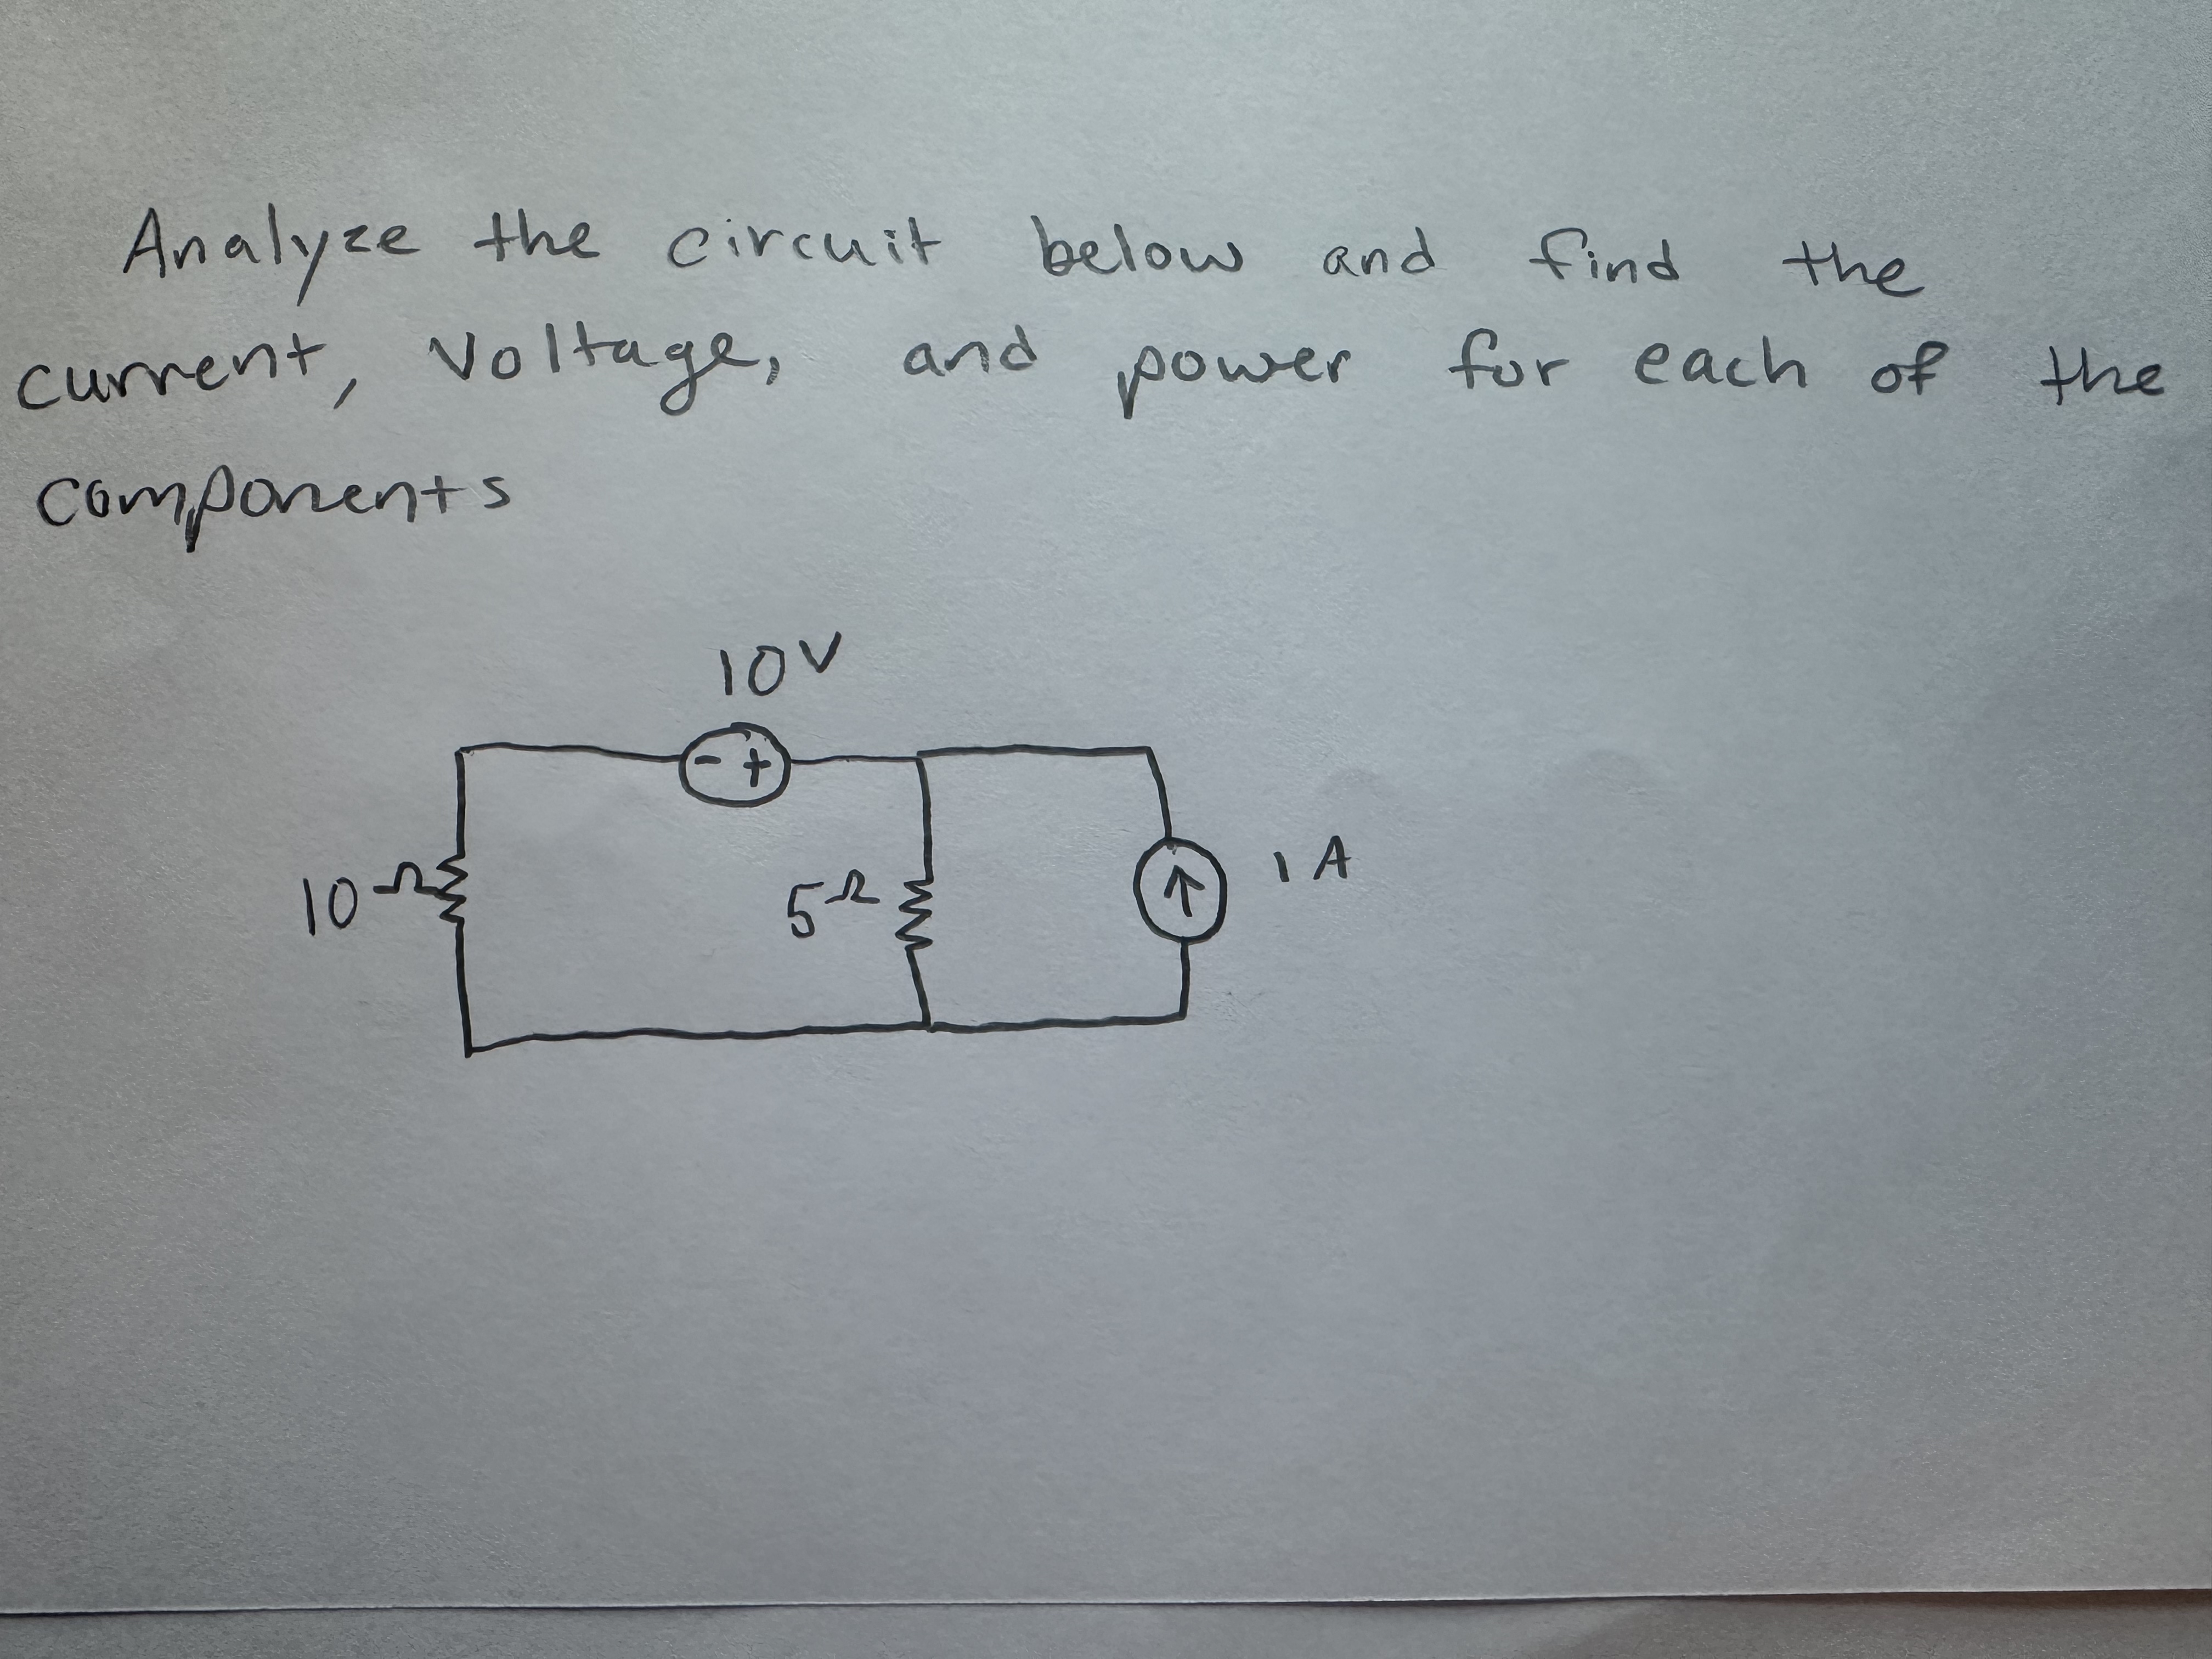 Analyze the circuit below and find the
current, Voltage, and power for each of the
components
10V
- +
10Ω
5Ω
1 A